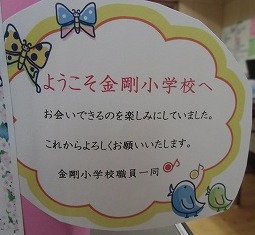 ようこそ金剛小学校へ
お会いできるのを楽しみにしていました。
これからよろしくお願いいたします。
金剛小学校職員一同